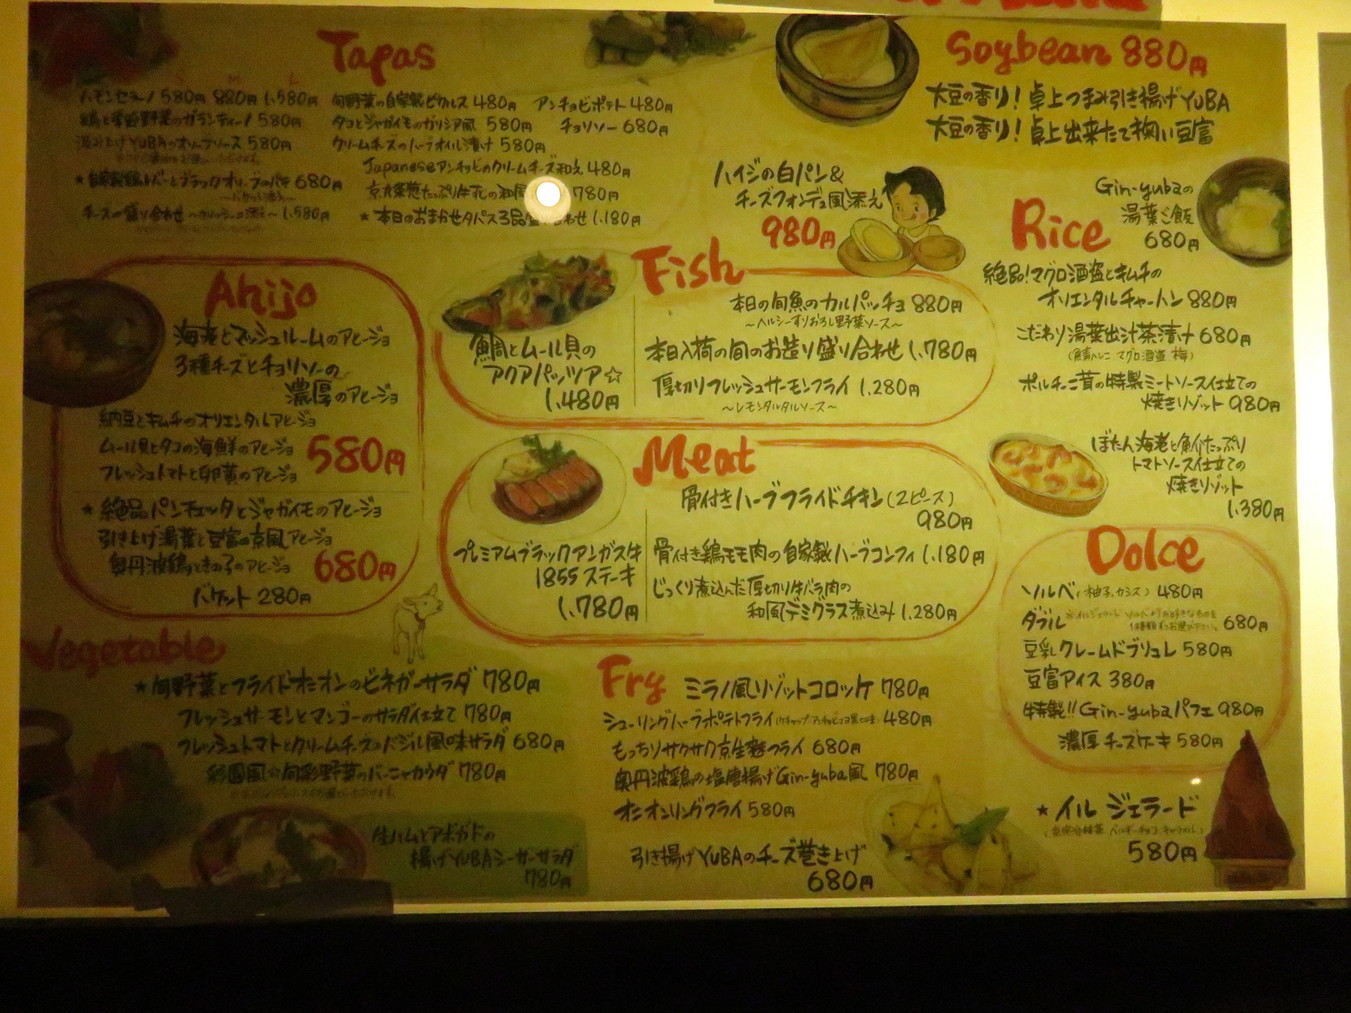 Tapas
ハモンセラーノ 580円 880円 1,580円
580円
湯み上げYUBAのオリーブソース 580円
680円
チーズの盛り合わせ 1,580円
旬野菜の自家製ピクルス 480円
タコとジャガイモのガリシア風 580円
クリームチーズのハーブオイル漬け 580円
Japaneseアンチョビのクリームチーズ和え 480円
780円
★本日のおまかせタパス3品盛 わせ 1,180円
アンチョビポテト 480円
チョリソー 680円
Soybean 880円
大豆の香り!卓上つまみ引き揚げYUBA
大豆の香り!卓上出来たて掬い豆富
ハイジの白パン&
チーズフォンデュ風添え
980円
Gin-yubaの
湯葉ご飯
680円
Rice
絶品!マグロ酒盗とキムチの
オリエンタルチャーハン 880円
こだわり湯葉出汁茶漬け 680円
ポルチーニ茸の特製ミートソース仕立ての
焼きリゾット 980円
ぼたん海老と魚介たっぷり
トマトソース仕立ての
焼きリゾット
1,380円
Ahijo
海老とマッシュルームのアヒージョ
3種チーズとチョリソーの
濃厚のアヒージョ
納豆とキムチのオリエンタルアヒージョ
ムール貝とタコの海鮮のアヒージョ
フレッシュトマトと卵黄のアヒージョ
580円
★絶品パンチェッタとジャガイモのアヒージョ
引き上げ湯葉と豆富の京風アヒージョ
奥丹波鶏ときの子のアヒージョ
680円
バケット 280円
Fish
鯛とムール貝の
アクアパッツア☆
1,480円
本日の旬魚のカルパッチョ 880円
~ヘルシーすりおろし野菜ソース~
本日入荷の旬のお造り盛り合わせ 1,780円
厚切りフレッシュサーモンフライ 1,280円
~レモンタルタルソース~
Meat
プレミアムブラックアンガス牛
1855ステーキ
1,780円
骨付きハーブフライドチキン(2ピース)
980円
骨付き鶏モモ肉の自家製ハーブコンフィ 1,180円
じっくり煮込んだ厚切り牛バラ肉の
和風デミグラス煮込み 1,280円
Vegetable
★旬野菜とフライドオニオンのビネガーサラダ 780円
フレッシュサーモンとマンゴーのサラダ仕立て 780円
フレッシュトマトとクリームチーズのバジル風味サラダ 680円
彩園風☆旬彩野菜のバーニャカウダ 780円
生ハムとアボガドの
揚げYUBAシーザーサラダ
780円
Fry
ミラノ風リゾットコロッケ 780円
シューリングハーブポテトフライ 480円
もっちりサクサク京生麩フライ 680円
奥丹波鶏の塩唐揚げGin-yuba風 780円
オニオンリングフライ 580円
引き揚げYUBAのチーズ巻き上げ
680円
Dolce
ソルベ(柚子,カシス) 480円
ダブル 680円
豆乳クレームドブリュレ 580円
豆富アイス 380円
特製!!Gin-yubaパフェ 980円
濃厚チーズケーキ 580円
★イル ジェラード
580円